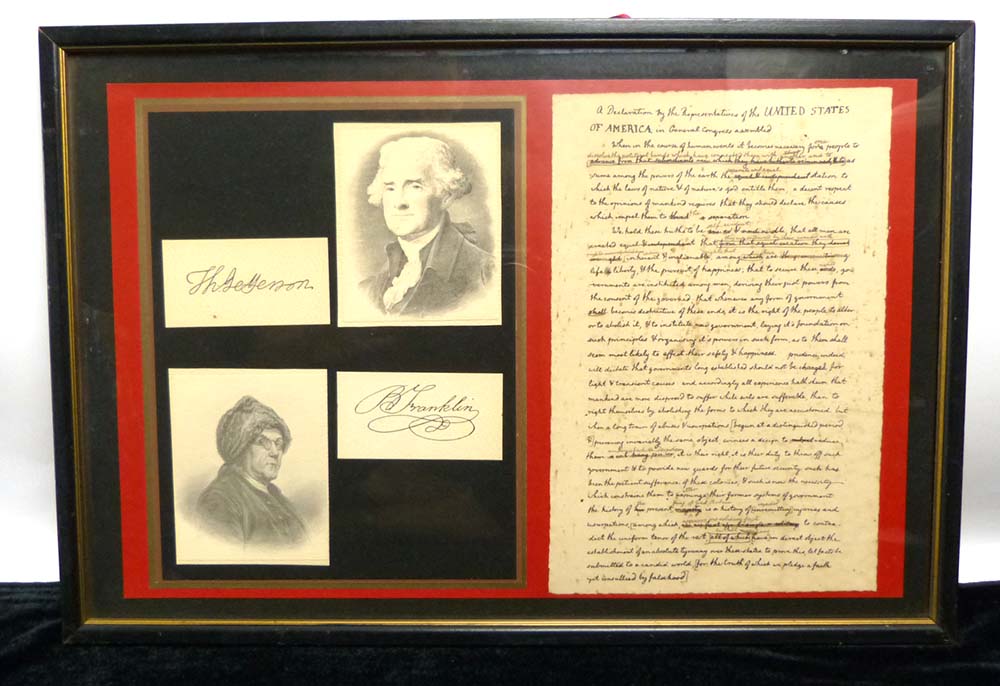 Th Jefferson
B Franklin
a Declaration by the Representatives of the UNITED STATES
OF AMERICA in General Congress assembled
When in the course of human events it becomes necessary for one people to
dissolve the political bands which have connected them with another and to
advance from that subordination in which they have hitherto remained, & to as
sume among the powers of the earth the equal & independent station to
separate and equal
which the laws of nature & of nature's god entitle them, a decent respect
to the opinions of mankind requires that they should declare the causes
which impel them to the separation
self-evident
We hold these truths to be that all men are
created equal & independent that from that equal creation they derive
inherent & inalienable, among which are the
life liberty, & the pursuit of happiness; that to secure these ends, go
vernments are instituted among men, deriving their just powers from
the consent of the governed; that whenever any form of government
shall becomes destructive of these ends, it is the right of the people to alter
or to abolish it, & to institute new government, laying it's foundation on
such principles & organising it's powers in such form, as to them shall
seem most likely to effect their safety & happiness. prudence indeed
will dictate that governments long established should not be changed for
light & transient causes and accordingly all experience hath shewn that
mankind are more disposed to suffer while evils are sufferable, than to
right themselves by abolishing the forms to which they are accustomed but
when a long train of abuses & usurpations [begun at a distinguished period
& pursuing invariably the same object, evinces a design to reduce
them it is their right, it is their duty to throw off such
government & to provide new guards for their future security such has
been the patient sufferance of these colonies, & such is now the necessity
which constrains them to expunge their former systems of government
the history of present is a history of injuries and
usurpations, [among which, to contra
dict the uniform tenor of the rest, all of which have in direct object the
establishment of an absolute tyranny over these states to prove this, let facts be
submitted to a candid world [for the truth of which we pledge a faith
yet unsullied by falsehood]